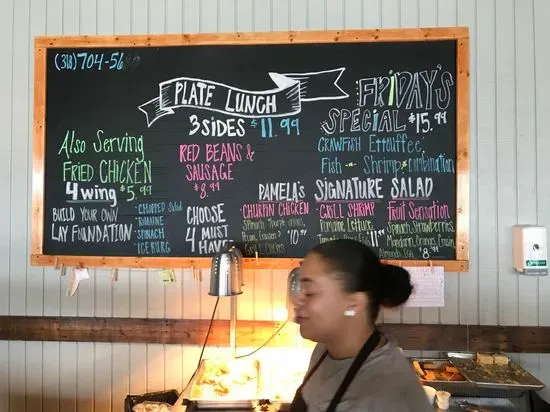 (318)704-56
PLATE LUNCH
3 SIDES $11.99
FRIDAY'S
SPECIAL $15.99
CRAWFISH Ettouffee
Fish or Shrimp combination
Also Serving
FRIED CHICKEN
4 wing $5.99
RED BEANS &
SAUSAGE
$8.99
BUILD YOUR OWN
LAY FOUNDATION
CHOPPED Salad
ROMAINE
SPINACH
ICEBURG
CHOOSE
4 MUST
HAVE
PAMELA'S SIGNATURE SALAD
CHURPIN CHICKEN
Spinach
Chicken
GRILL SHRIMP
Romaine Lettuce
Fruit Sensation
Spinach, Strawberries
Mandarin, Oranges
Almonds, EGG $8.99